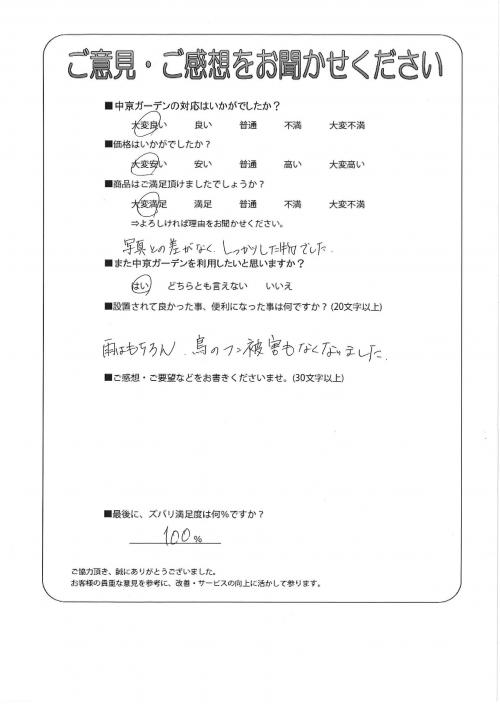 ご意見・ご感想をお聞かせください
■中京ガーデンの対応はいかがでしたか？
大変良い 良い 普通 不満 大変不満
■価格はいかがでしたか？
大変安い 安い 普通 高い 大変高い
■商品はご満足頂けましたでしょうか？
大変満足 満足 普通 不満 大変不満
⇒よろしければ理由をお聞かせください。
写真との差がなく、しっかりした物でした。
■また中京ガーデンを利用したいと思いますか？
はい どちらとも言えない いいえ
■設置されて良かった事、便利になった事は何ですか？(20文字以上)
雨はもちろん、鳥のフン被害もなくなりました。
■ご感想・ご要望などをお書きくださいませ。(30文字以上)
■最後に、ズバリ満足度は何％ですか？
100％
ご協力頂き、誠にありがとうございました。
お客様の貴重な意見を参考に、改善・サービスの向上に活かして参ります。